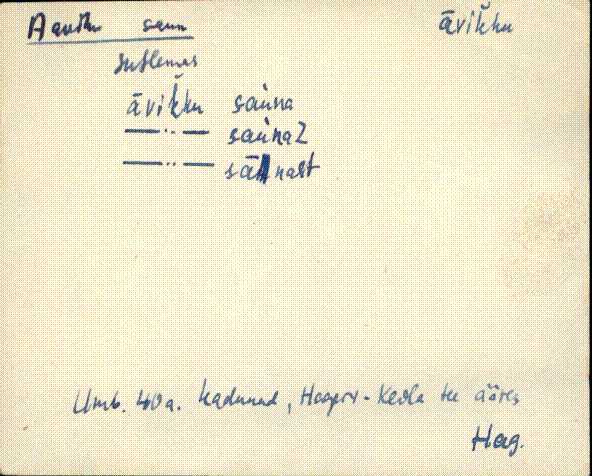 Aaviku saun āvik̆ku
suplemas
āvik̆ku sau̇na
—··— sau̇naZ
—··— sānast
Umb. 40 a. kadunud, - Keila tee ääres
Hag.